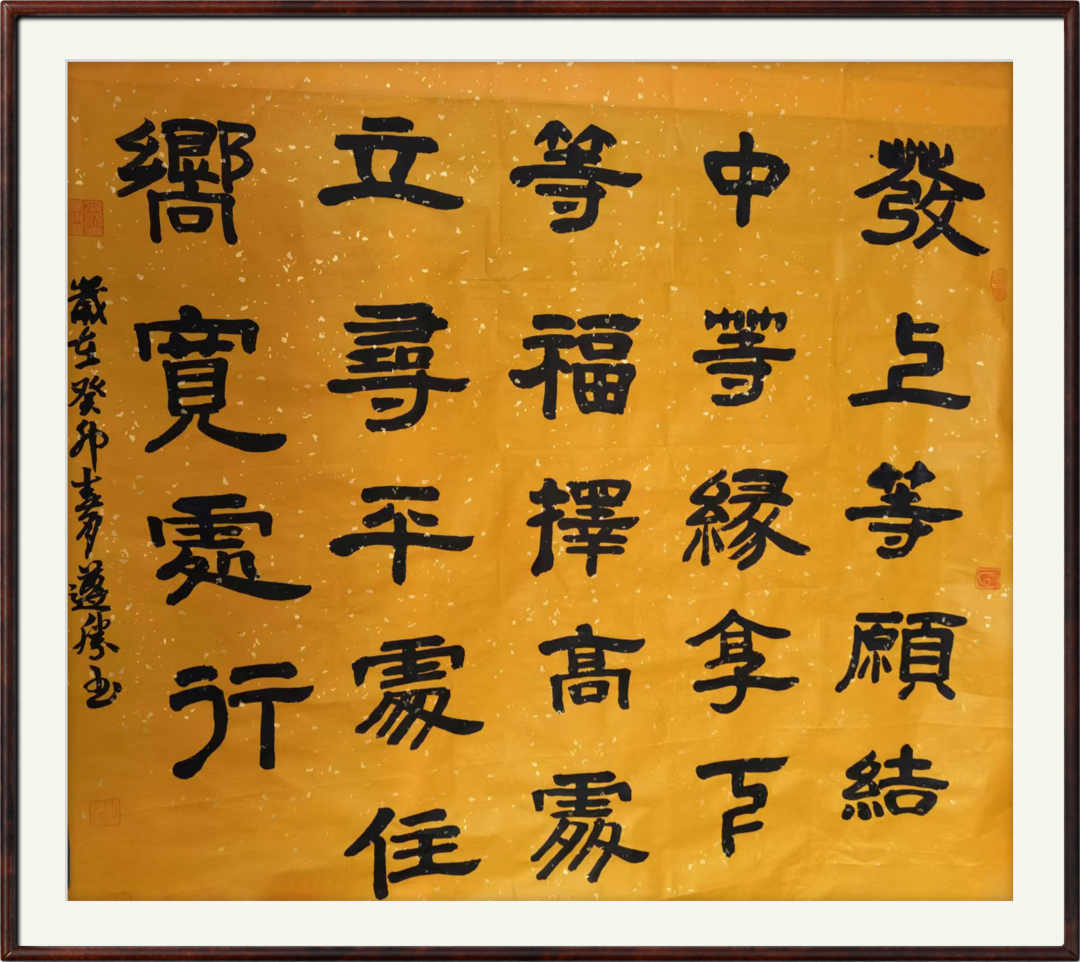 發上等願結
中等緣享下
等福擇高處
立尋平處住
嚮寬處行
歲在癸卯春月